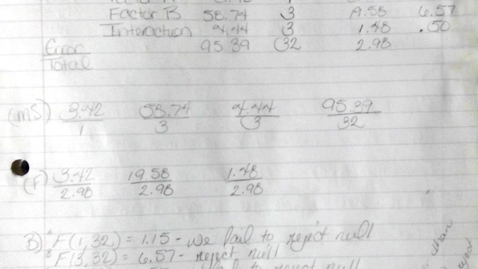 Factor B 58.74 3 19.58 6.57
Interaction 4.44 3 1.48 .50
Error 95.39 32 2.98
Total
(MS) 3.42/1 58.74/3 4.44/3 95.39/32
(F) 3.42/2.98 19.58/2.98 1.48/2.98
B) F(1,32) = 1.15 - we fail to reject null
F(3,32) = 6.57 - reject null
to reject null